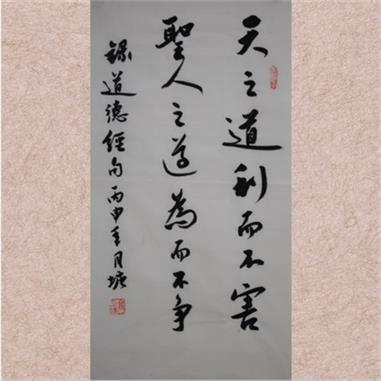 天之道利而不害
聖人之道為而不争
錄道德經句丙申月塘